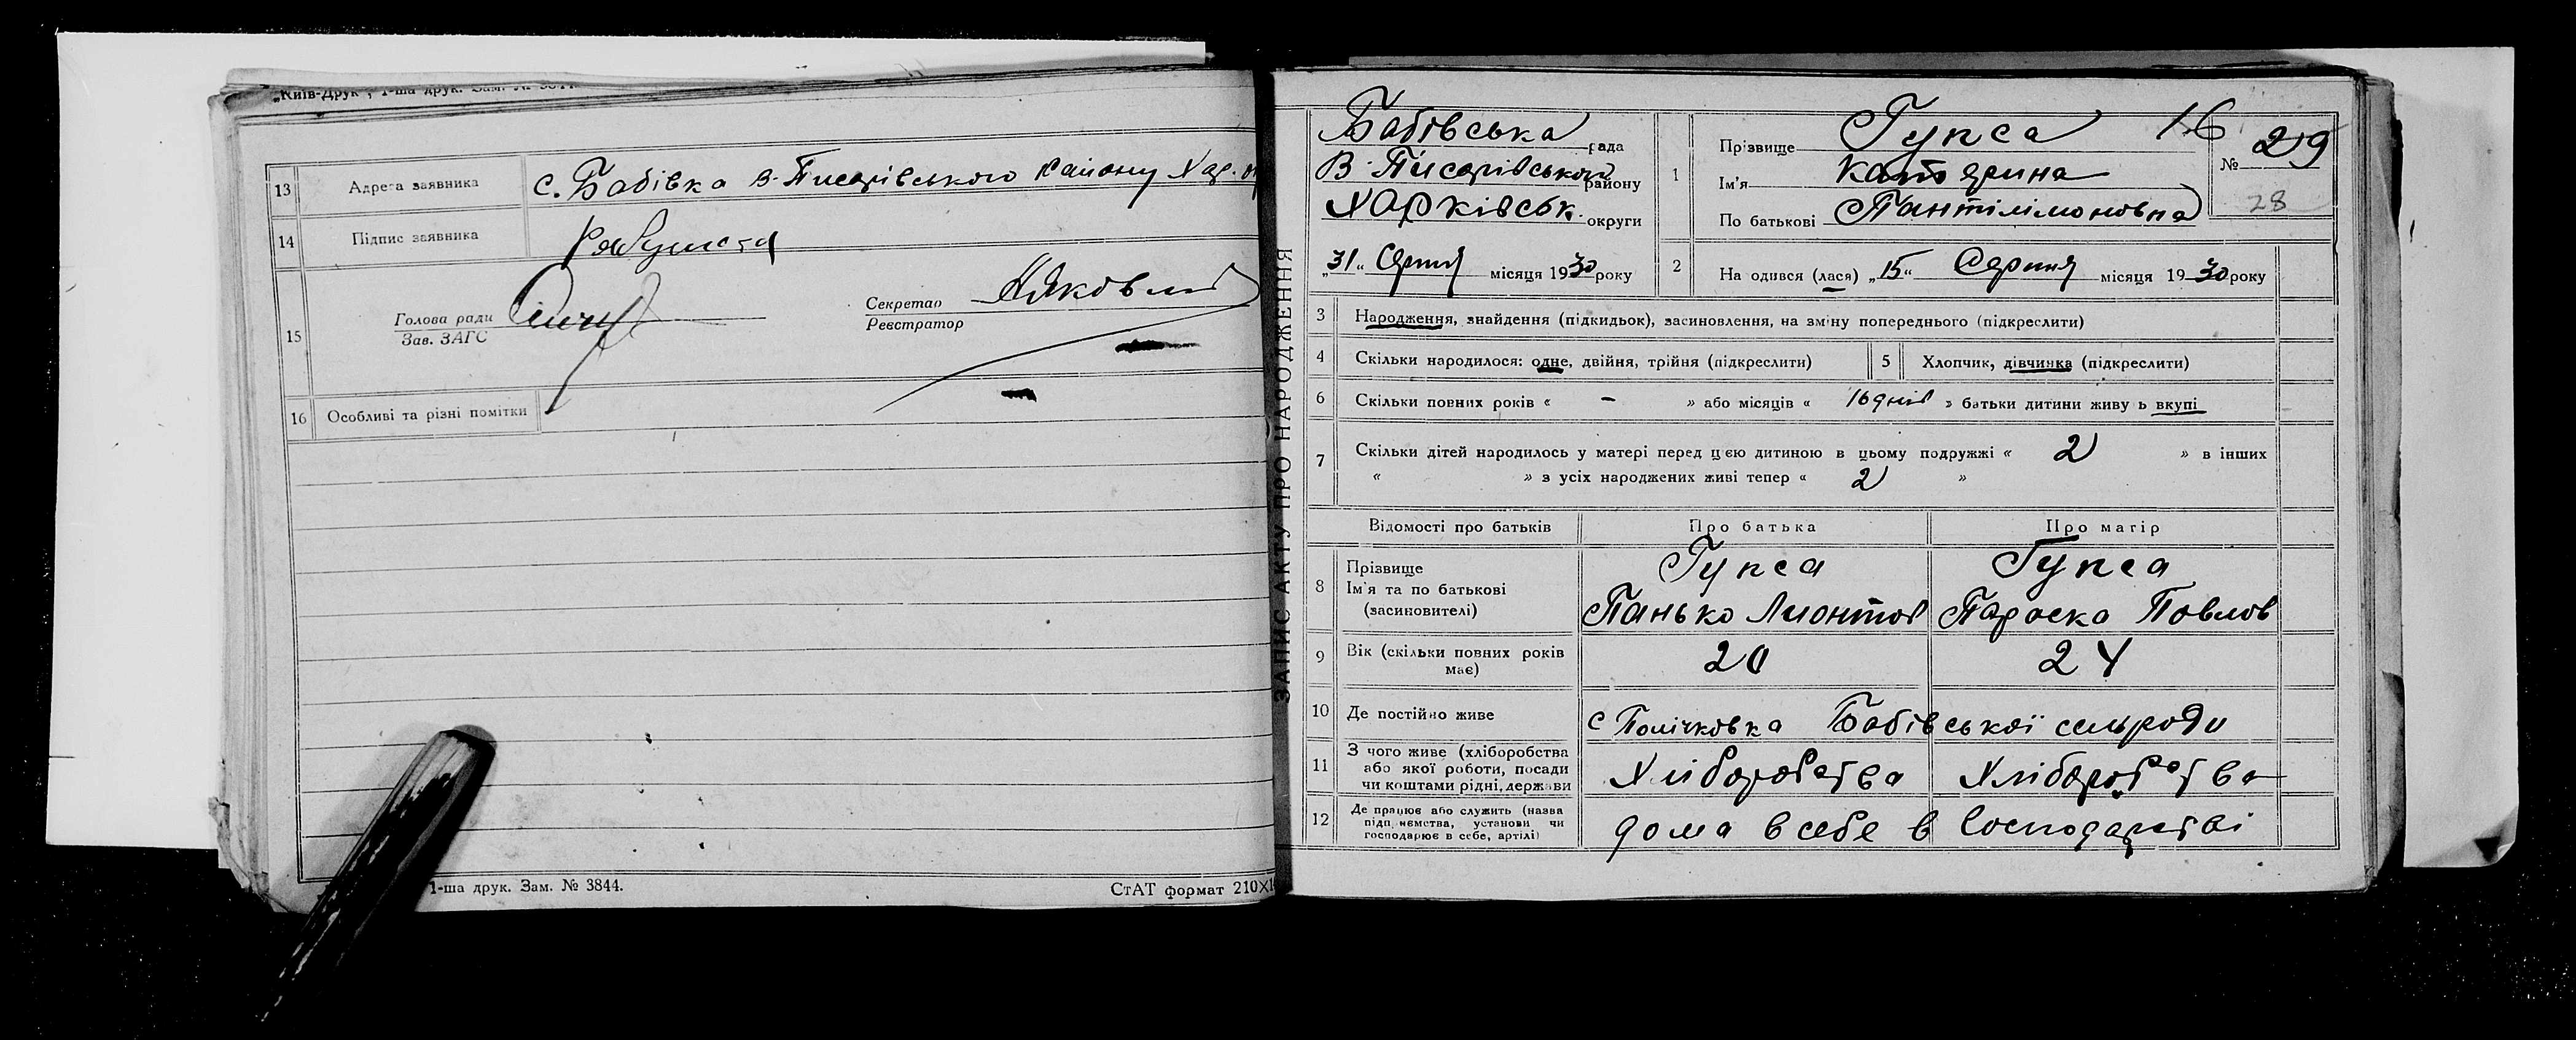 „Київ-Друк", 1-ша друк. Зам. №
13 Адреса заявника с. Бабівка В-Писарівського Району Хар. ок
14 Підпис заявника
15 Голова ради
Зав. ЗАГС
Секретар Яковлів
Реєстратор
16 Особливі та різні помітки
1-ша друк. Зам. № 3844. СтАТ формат 210×1
ЗАПИС АКТУ ПРО НАРОДЖЕННЯ
Бабівська рада
В-Писарівського району
Харківськ. округи
„31" Серпня місяця 1930 року
1 Прізвище Гупса 16
Ім'я Катярина
По батькові Пантілімоновна
№ 29
28
2 На одився (лася) „15" Серпня місяця 1930 року
3 Народження, знайдення (підкидьок), засиновлення, на зміну попереднього (підкреслити)
4 Скільки народилося: одне, двійня, трійня (підкреслити) 5 Хлопчик, дівчинка (підкреслити)
6 Скільки повних років « - » або місяців « 16 днів » батьки дитини живу ь вкупі
7 Скільки дітей народилось у матері перед цією дитиною в цьому подружжі « 2 » в інших
« » з усіх народжених живі тепер « 2 »
Відомості про батьків Про батька Про матір
8 Прізвище
Ім'я та по батькові
(засиновителі)
Гупса Гупса
Панько Лионтов Параска Павлов
9 Вік (скільки повних років
має)
20 24
10 Де постійно живе с Полічковка Бабівської сельради
11 З чого живе (хліборобства
або якої роботи, посади
чи коштами рідні, держави
Хліборобства Хліборобства
12 Де працює або служить (назва
підприємства, установи чи
господарює в себе, артілі)
дома в себе в господарстві